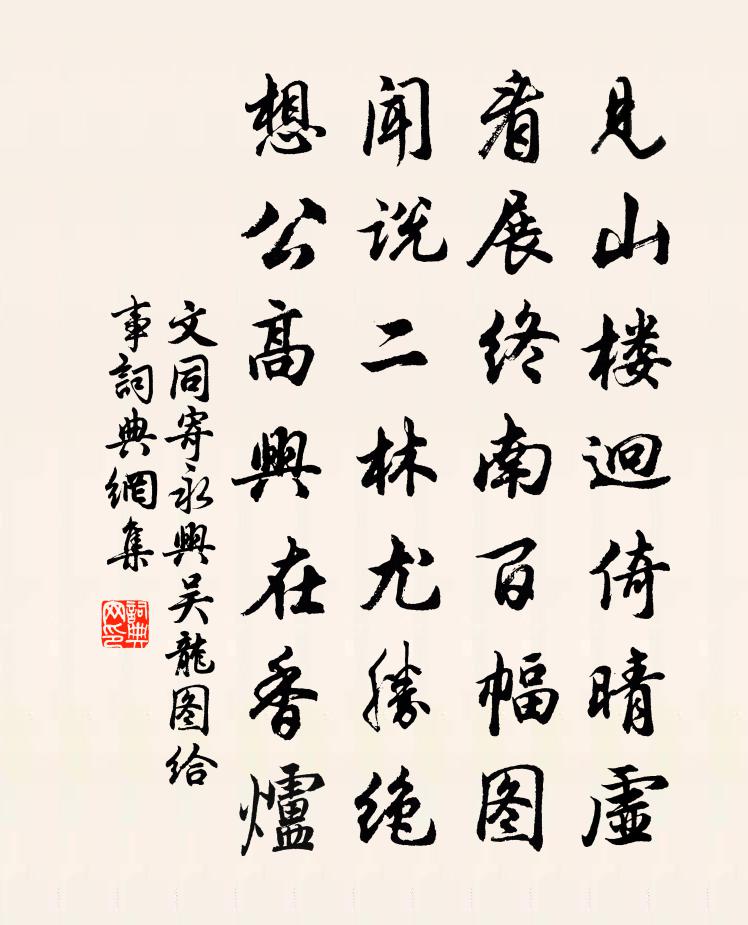 见山楼迥倚晴虚
看展终南百幅图
闻说二林尤胜绝
想公高興在香爐
文同寄永興吴龍图给
事詞典網集
詞典
网印